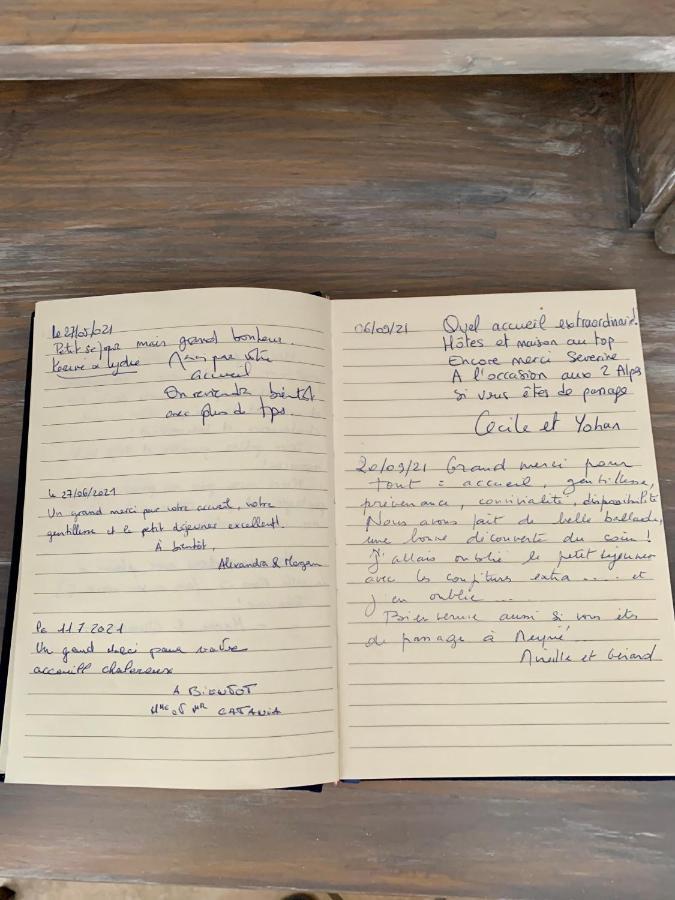 le 27/05/2021
Petit séjour mais grand bonheur
Merci par votre
accueil
On reviendra bientôt
avec plus de tps.
le 27/06/2021
Un grand merci par votre accueil, votre
gentillesse et le petit déjeuner excellent!
À bientôt,
Alexandra & Morgan
le 11.7.2021
Un grand merci pour votre
accueill chalereux
A BIENTOT
Mme et Mr CATANIA
06/09/21 Quel accueil extraordinaire!
Hôtes et maison au top
Encore merci Severine
A l'occasion aux 2 Alpes
si vous êtes de passage
Cecile et Yohan
20/09/21 Grand merci pour
tout : accueil, gentillesse,
prévenance, convivialité, disponibilité
Nous avons fait de belle ballades,
une bonne découverte du coin !
J'allais oublié le petit déjeuner
avec les confitures extra .... et
j'en oublie ....
Bienvenue aussi si vous êtes
de passage à
Mireille et Gérard